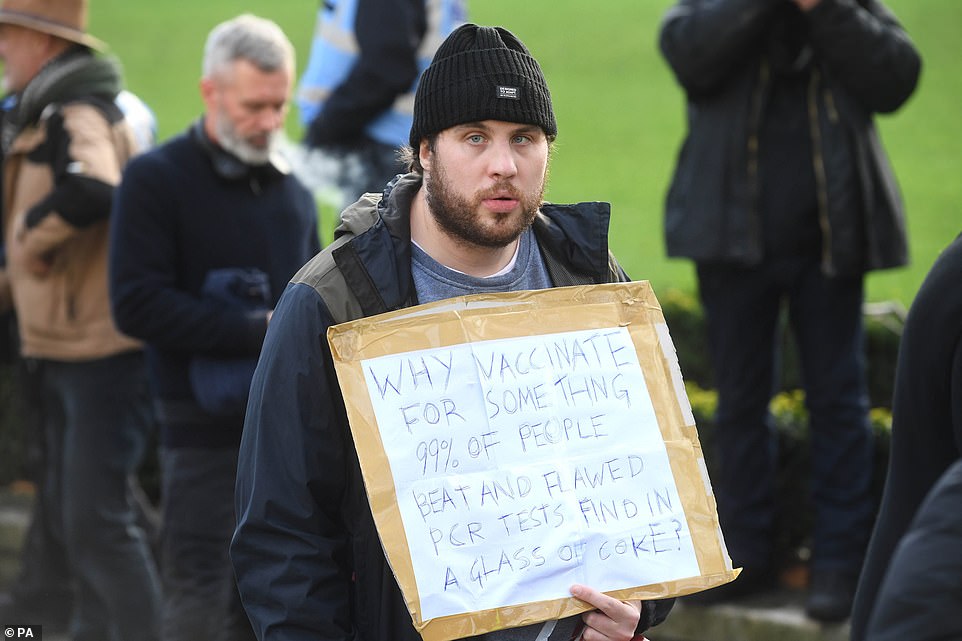 WHY VACCINATE
FOR SOMETHING
99% OF PEOPLE
BEAT AND FLAWED
PCR TESTS FIND IN
A GLASS OF COKE?
© PA